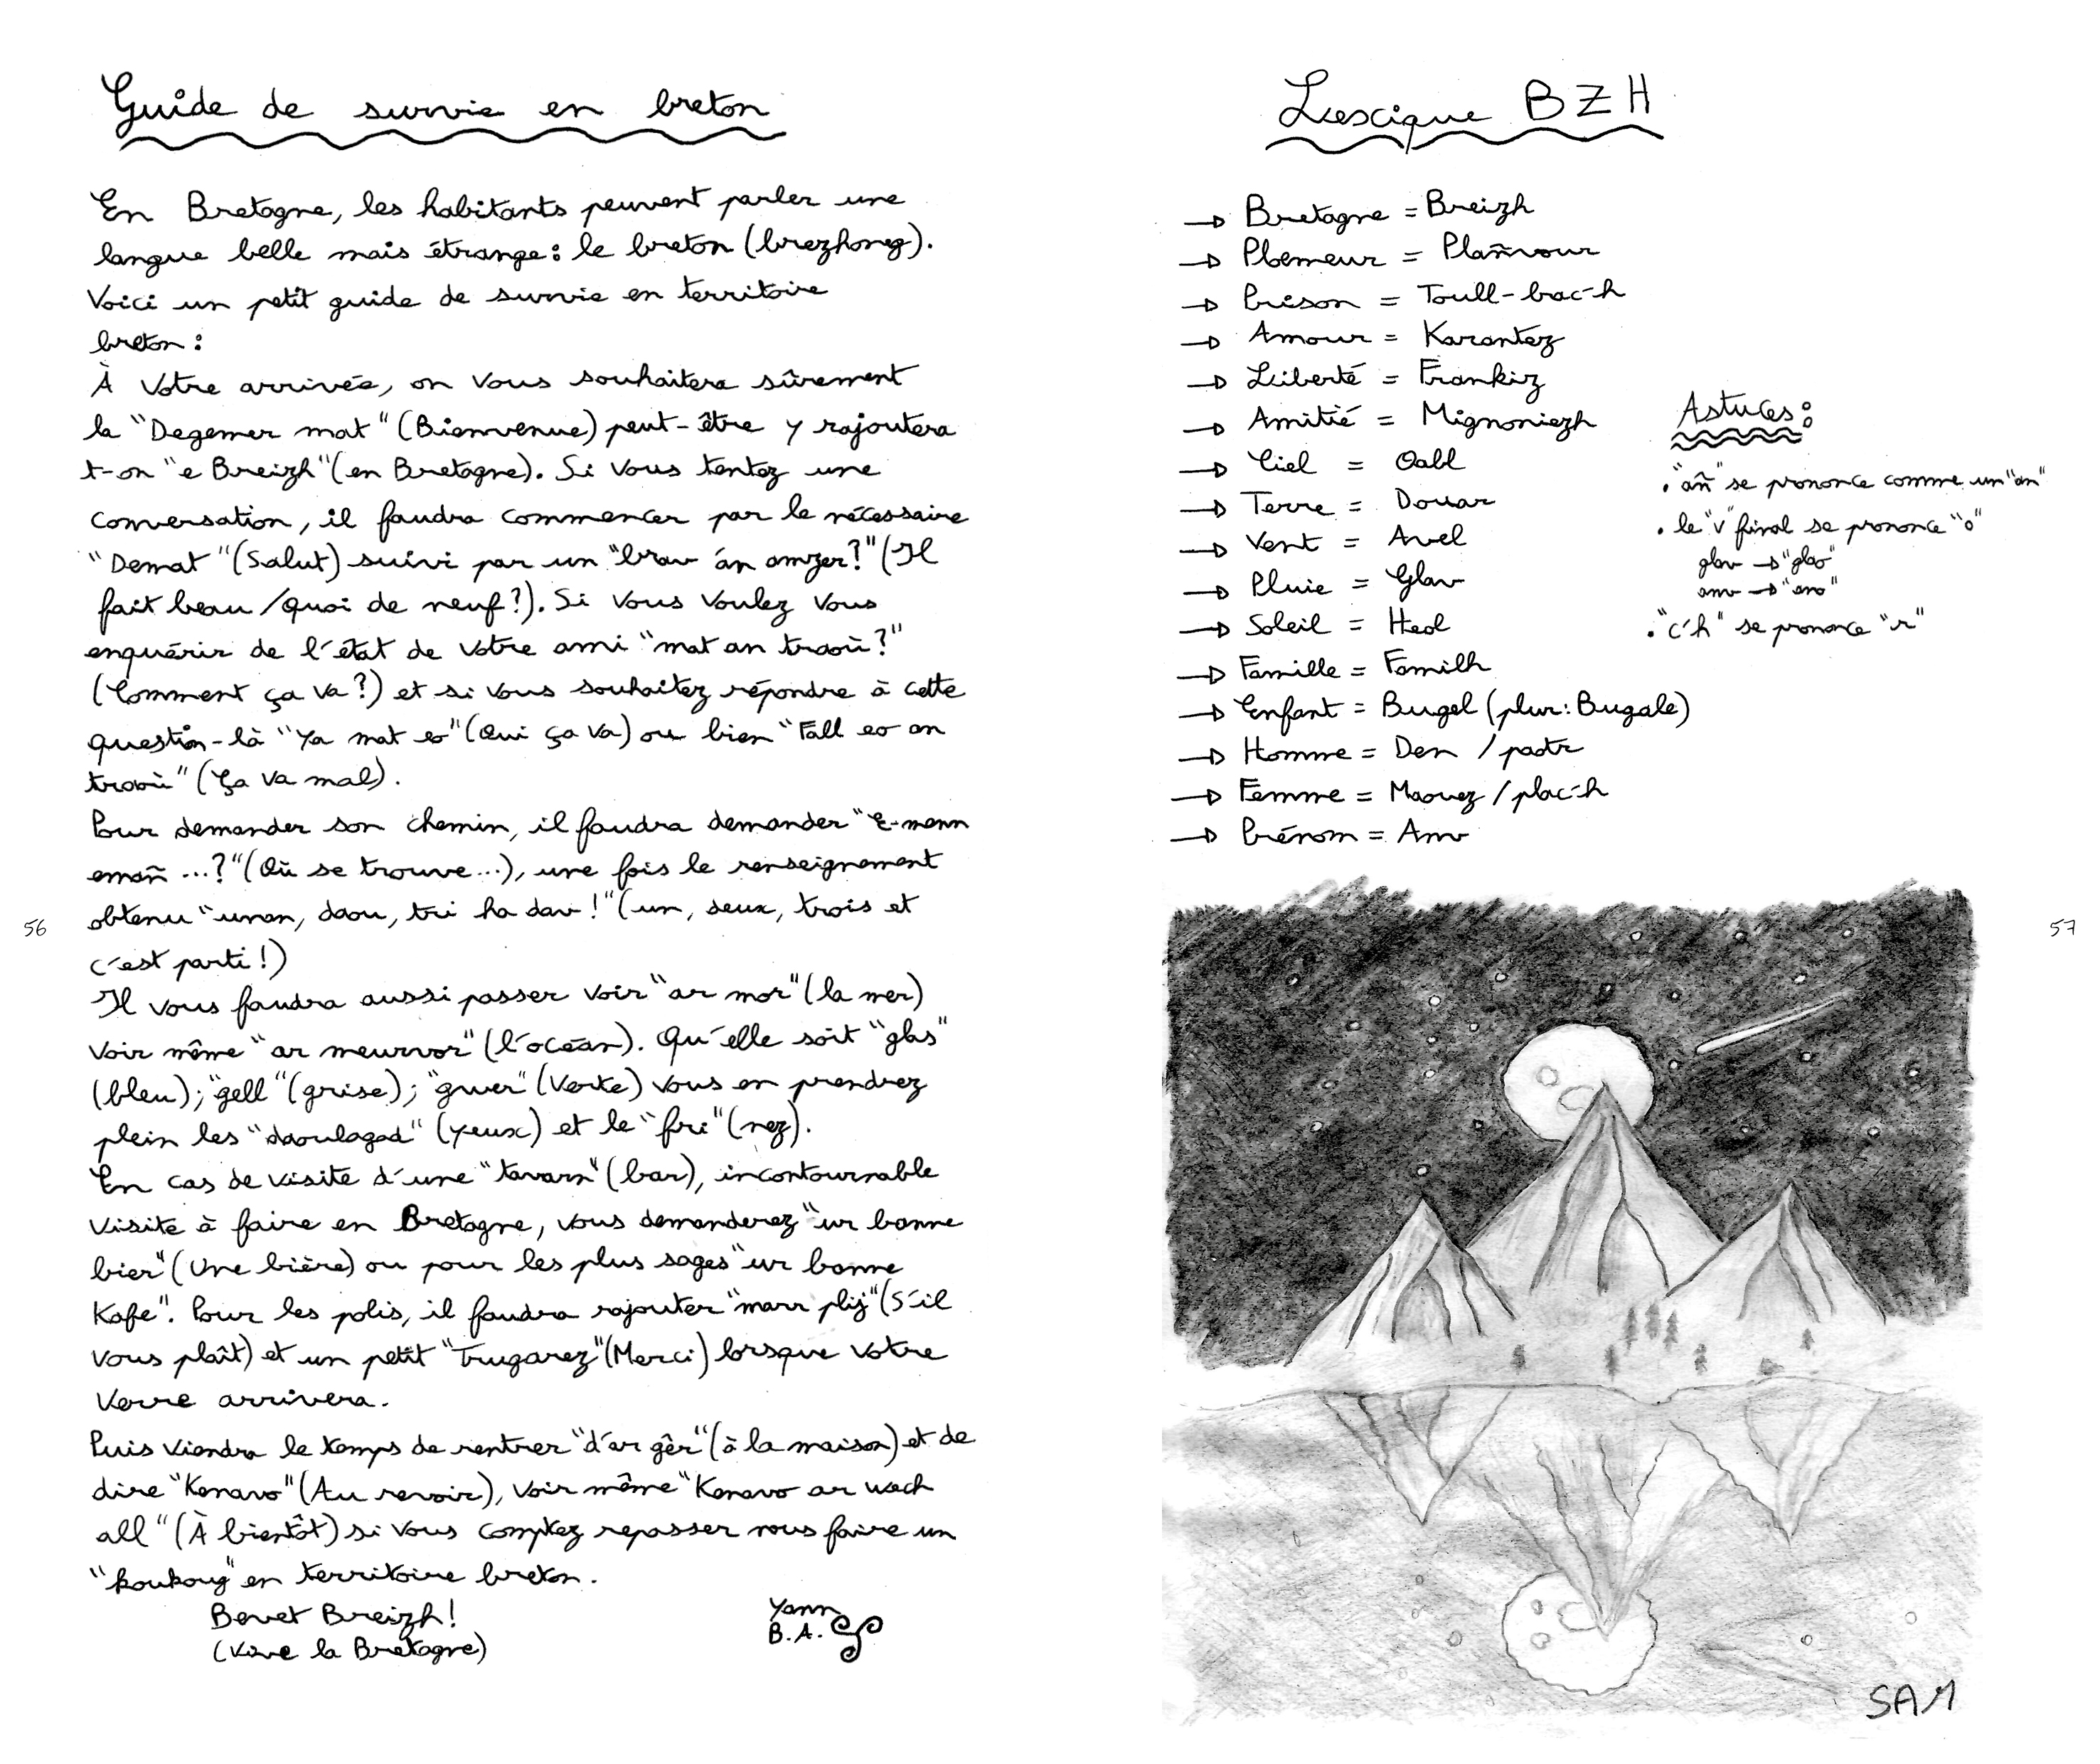 Guide de survie en breton
En Bretagne, les habitants peuvent parler une
langue belle mais étrange: le breton (brezhoneg).
Voici un petit guide de survie en territoire
breton:
À votre arrivée, on vous souhaitera sûrement
la "Degemer mat" (Bienvenue) peut-être y rajoutera
t-on "e Breizh" (en Bretagne). Si vous tentez une
conversation, il faudra commencer par le nécessaire
"Demat" (Salut) suivi par un "brav an amzer?" (Il
fait beau/quoi de neuf?). Si vous voulez vous
enquérir de l'état de votre ami "mat an traoù?"
(Comment ça va?) et si vous souhaitez répondre à cette
question-là "Ya mat eo" (Oui ça va) ou bien "Fall eo an
traoù" (Ça va mal).
Pour demander son chemin, il faudra demander "E-menn
emañ ...?" (Où se trouve...), une fois le renseignement
obtenu "unan, daou, tri ha dav!" (un, deux, trois et
c'est parti!)
Il vous faudra aussi passer voir "ar mor" (la mer)
voir même "ar meurvor" (l'océan). Qu'elle soit "glas"
(bleu); "gell" (grise); "gwer" (verte) vous en prendrez
plein les "daoulagad" (yeux) et le "fri" (nez).
En cas de visite d'une "tavarn" (bar), incontournable
visite à faire en Bretagne, vous demanderez "ur banne
bier" (Une bière) ou pour les plus sages "ur banne
Kafe". Pour les polis, il faudra rajouter "marr plij" (S'il
vous plaît) et un petit "Trugarez" (Merci) lorsque votre
verre arrivera.
Puis viendra le temps de rentrer "d'ar gêr" (à la maison) et de
dire "Kenavo" (Au revoir), voir même "Kenavo ar wech
all" (À bientôt) si vous comptez repasser nous faire un
"koukoug" en territoire breton.
Bevet Breizh!
(Vive la Bretagne)
Yann
B.A.
56
Lescique BZH
→ Bretagne = Breizh
→ Ploemeur = Plañvour
→ Prison = Toull-bac'h
→ Amour = Karantez
→ Liberté = Frankiz
→ Amitié = Mignoniezh
→ Ciel = Oabl
→ Terre = Douar
→ Vent = Avel
→ Pluie = Glav
→ Soleil = Heol
→ Famille = Familh
→ Enfant = Bugel (plur: Bugale)
→ Homme = Den / paotr
→ Femme = Maouez / plac'h
→ Prénom = Anv
Astuces:
• "añ" se prononce comme un "an"
• le "v" final se prononce "o"
glav → "glao"
anv → "ano"
• "c'h" se prononce "r"
57
SAM